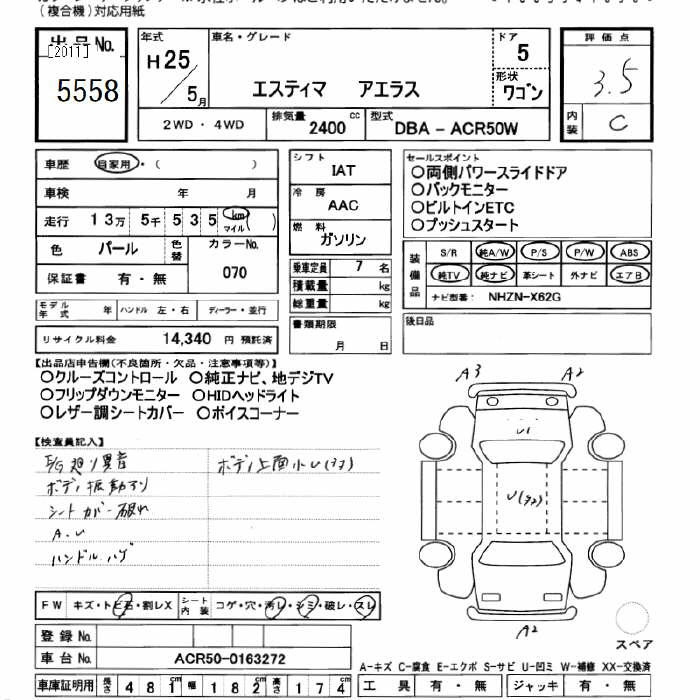 (複合機)対応用紙
出品No.
[2011]
5558
年式
H25
/5月
車名・グレード
エスティマ アエラス
ドア
5
形状
ワゴン
評価点
3.5
内装
C
2WD・4WD
排気量
2400 cc
型式
DBA - ACR50W
車歴 自家用・( )
車検 年 月
走行 13万 5千 5 3 5 km マイル ( )
色 パール 色替
カラーNo.
070
保証書 有・無
シフト
IAT
冷房
AAC
燃料
ガソリン
乗車定員 7 名
積載量 kg
総重量 kg
書類期限
月 日
セールスポイント
○両側パワースライドドア
○バックモニター
○ビルトインETC
○プッシュスタート
装備品
S/R 純A/W P/S P/W ABS
純TV 純ナビ 革シート 外ナビ エアB
ナビ型番: NHZN-X62G
後日品
モデル年式 年 ハンドル 左・右 ディーラー・並行
リサイクル料金 14,340 円 預託済
【出品店申告欄(不良箇所・欠品・注意事項等)】
○クルーズコントロール ○純正ナビ、地デジTV
○フリップダウンモニター ○HIDヘッドライト
○レザー調シートカバー ○ボイスコーナー
【検査員記入】
E/G廻り異音
ボディ上面小U(ヌケ)
ボディ振動アリ
シートカバー破れ
A.U
ハンドルハゲ
A3
A2
U1
A2
スペア
FW キズ・トビ石・割レX
シート内装 コゲ・穴・汚レ・シミ・破レ・スレ
登録No.
車台No. ACR50-0163272
A-キズ C-腐食 E-エクボ S-サビ U-凹ミ W-補修 XX-交換済
車庫証明用 長さ 481 幅 182 高さ 174 cm
工具 有・無 ジャッキ 有・無